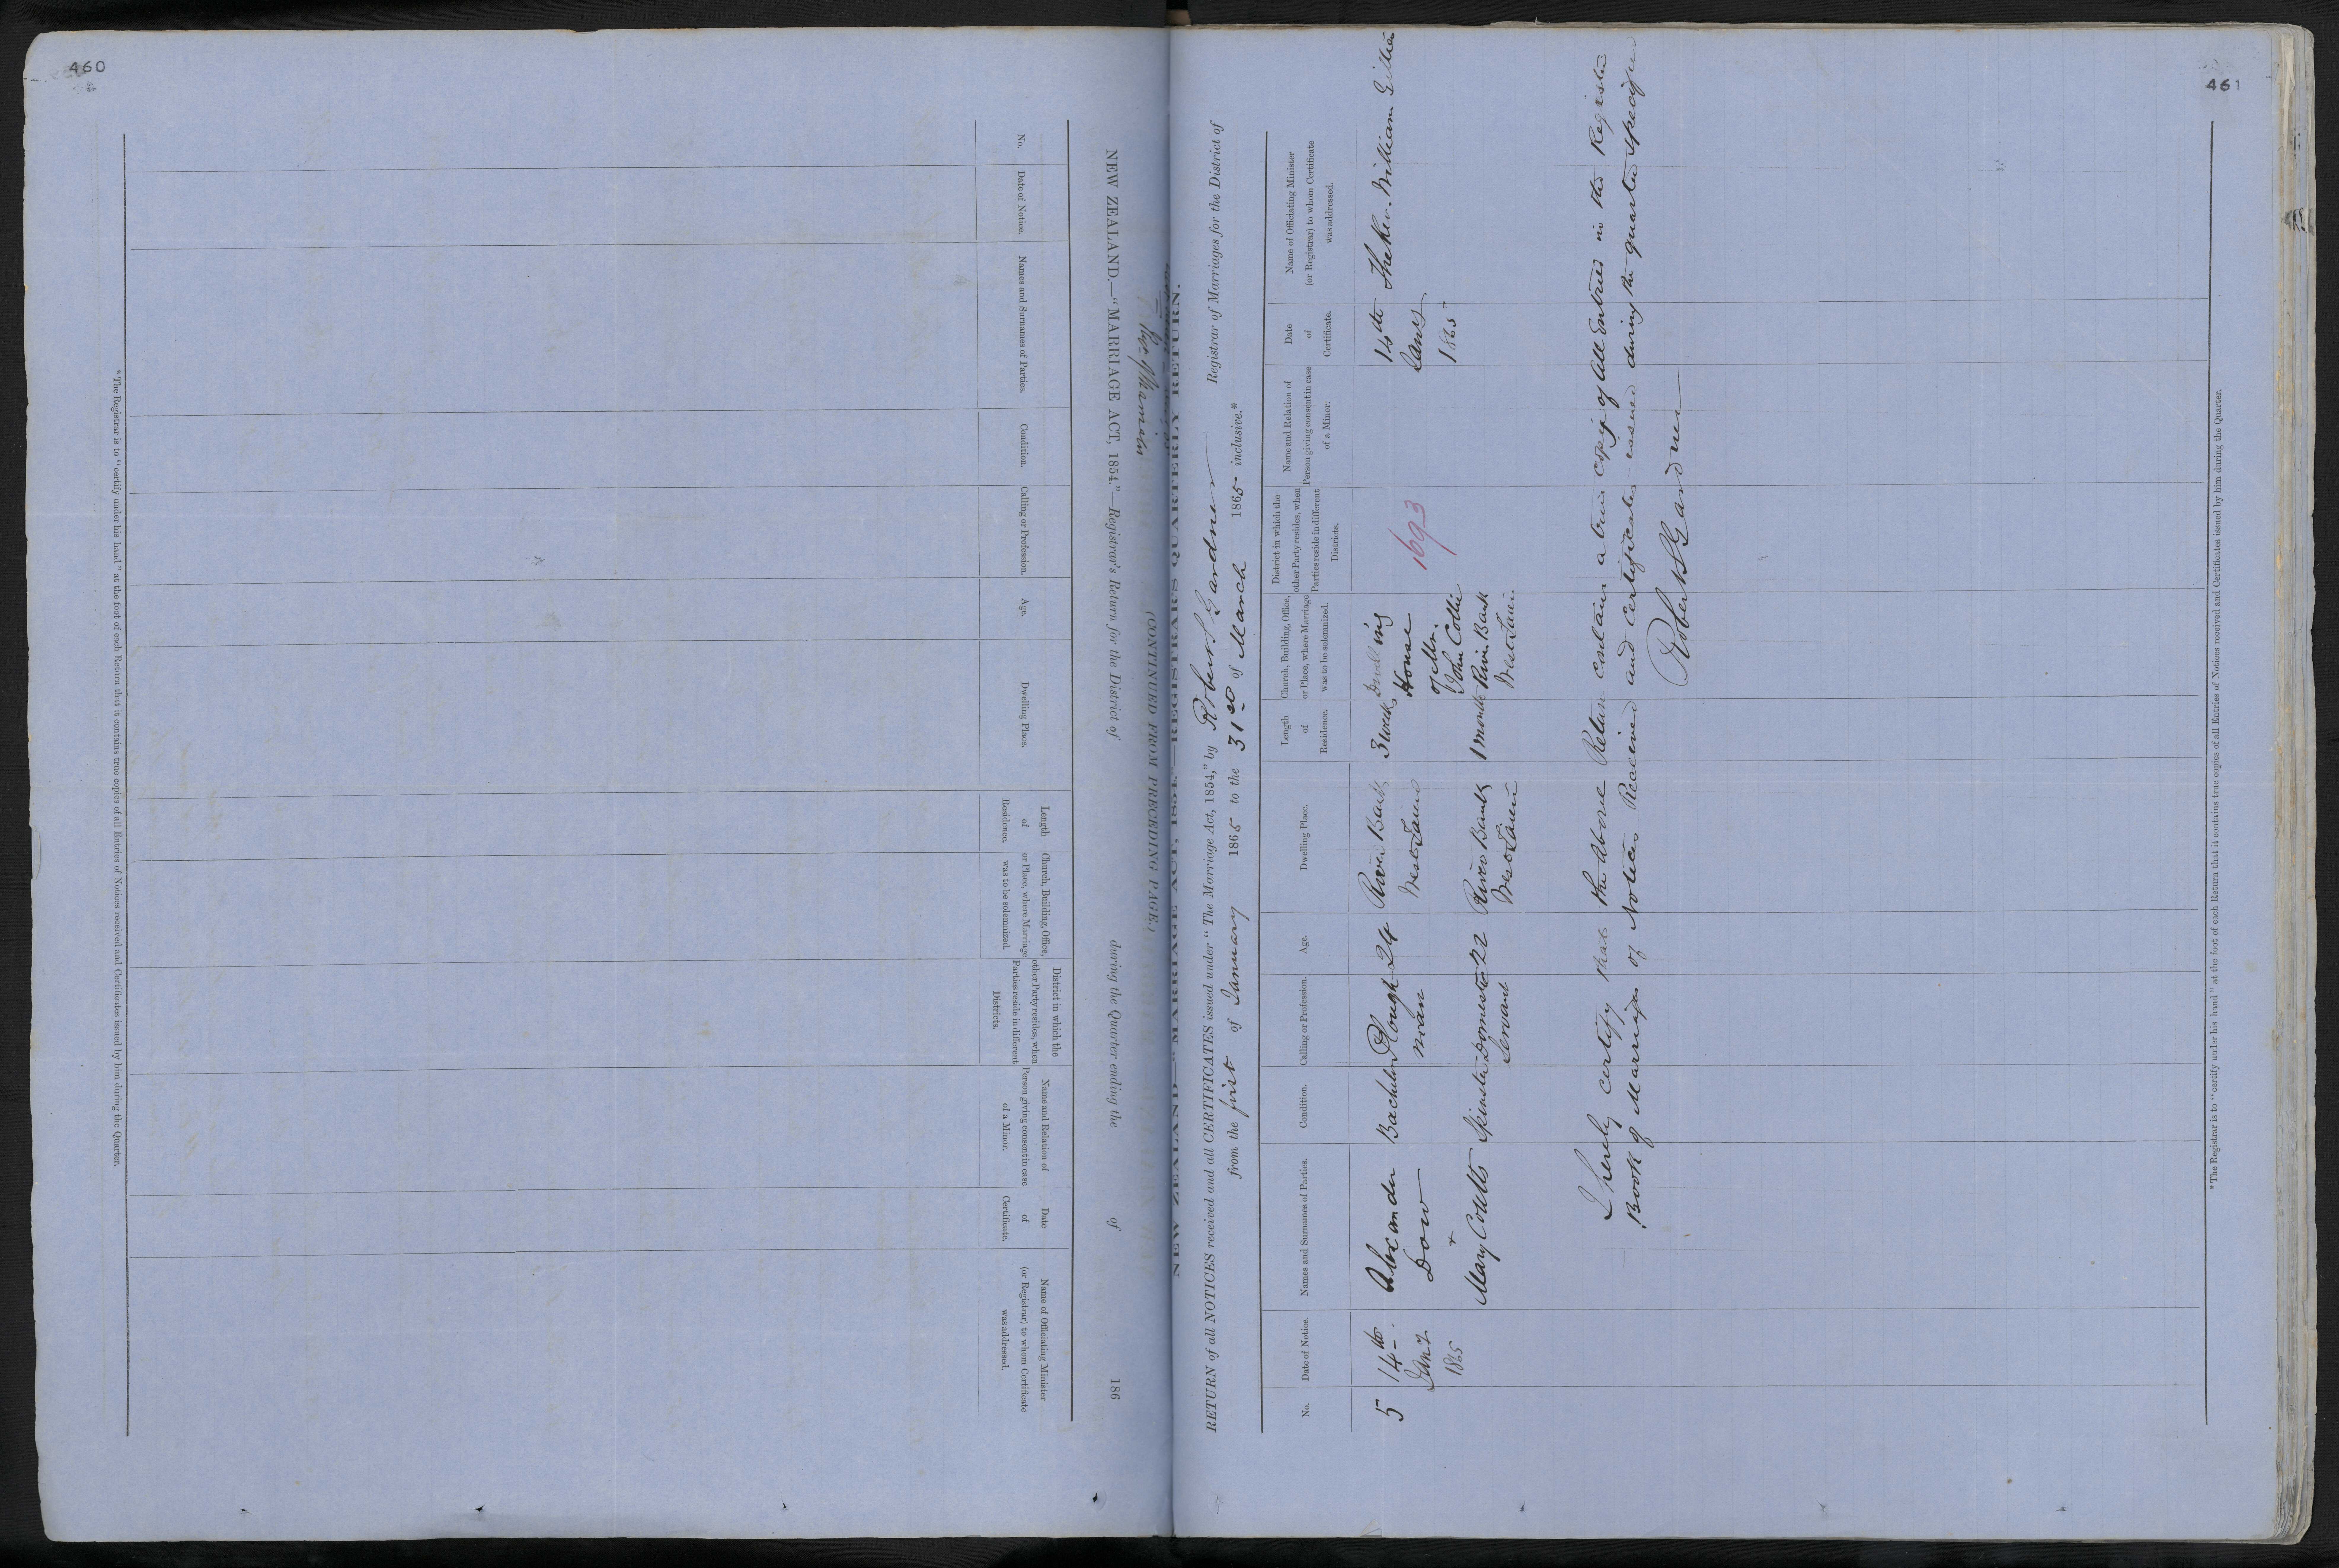 460
NEW ZEALAND.—"MARRIAGE ACT, 1854."—Registrar's Return for the District of during the Quarter ending the of 186
(CONTINUED FROM PRECEDING PAGE.)
No.
Date of Notice.
Names and Surnames of Parties.
Condition.
Calling or Profession.
Age.
Dwelling Place.
Length
of
Residence.
Church, Building, Office,
or Place, where Marriage
was to be solemnized.
District in which the
other Party resides, when
Parties reside in different
Districts.
Name and Relation of
Person giving consent in case
of a Minor.
Date
of
Certificate.
Name of Officiating Minister
(or Registrar) to whom Certificate
was addressed.
* The Registrar is to "certify under his hand" at the foot of each Return that it contains true copies of all Entries of Notices received and Certificates issued by him during the Quarter.
461
NEW ZEALAND—"MARRIAGE ACT, 1854."—REGISTRAR'S QUARTERLY RETURN.
RETURN of all NOTICES received and all CERTIFICATES issued under "The Marriage Act, 1854," by Robert S Gardner Registrar of Marriages for the District of
from the first of January 1865 to the 31st of March 1865 inclusive.*
No.
Date of Notice.
Names and Surnames of Parties.
Condition.
Calling or Profession.
Age.
Dwelling Place.
Length
of
Residence.
Church, Building, Office,
or Place, where Marriage
was to be solemnized.
District in which the
other Party resides, when
Parties reside in different
Districts.
Name and Relation of
Person giving consent in case
of a Minor.
Date
of
Certificate.
Name of Officiating Minister
(or Registrar) to whom Certificate
was addressed.
5
14th
Jany
1865
Alexander
Dow
+
Mary Coutts
Bachelor
Spinster
Plough
man
Domestic
Servant
24
22
River Bank
West Taieri
River Bank
West Taieri
3 weeks
1 month
Dwelling
House
of Mr.
John Collie
Riv. Bank
West Taieri
1693
14th
Jany
1865
The Rev. William Gillies
I hereby certify that the above Return contains a true copy of all Entries in the Register
Book of Marriages of Notices Received and certificates issued during the quarter specified
Robert S Gardner
* The Registrar is to "certify under his hand" at the foot of each Return that it contains true copies of all Entries of Notices received and Certificates issued by him during the Quarter.